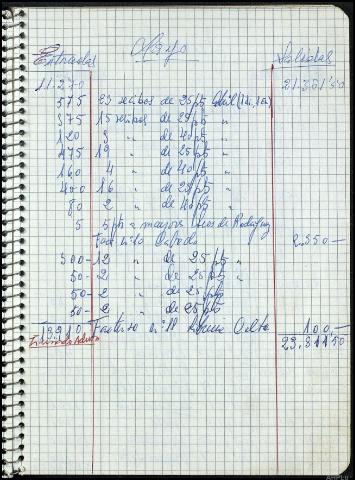 Entradas Mayo Salidas
11.270 21.361'50
575 23 recibos de 25 pts Abril
375 15 recibos de 25 pts "
120 3 " de 40 pts "
475 19 " de 25 pts "
160 4 " de 40 pts "
400 16 " de 25 pts "
80 2 " de 40 pts "
5 5 pts de Rodriguez
2.350 —
300 - 12 " de 25 pts "
50 - 2 " de 25 pts "
50 - 2 " de 25 pts
50 - 2 " de 25 pts
13.910 Factura 100, —
23.811'50